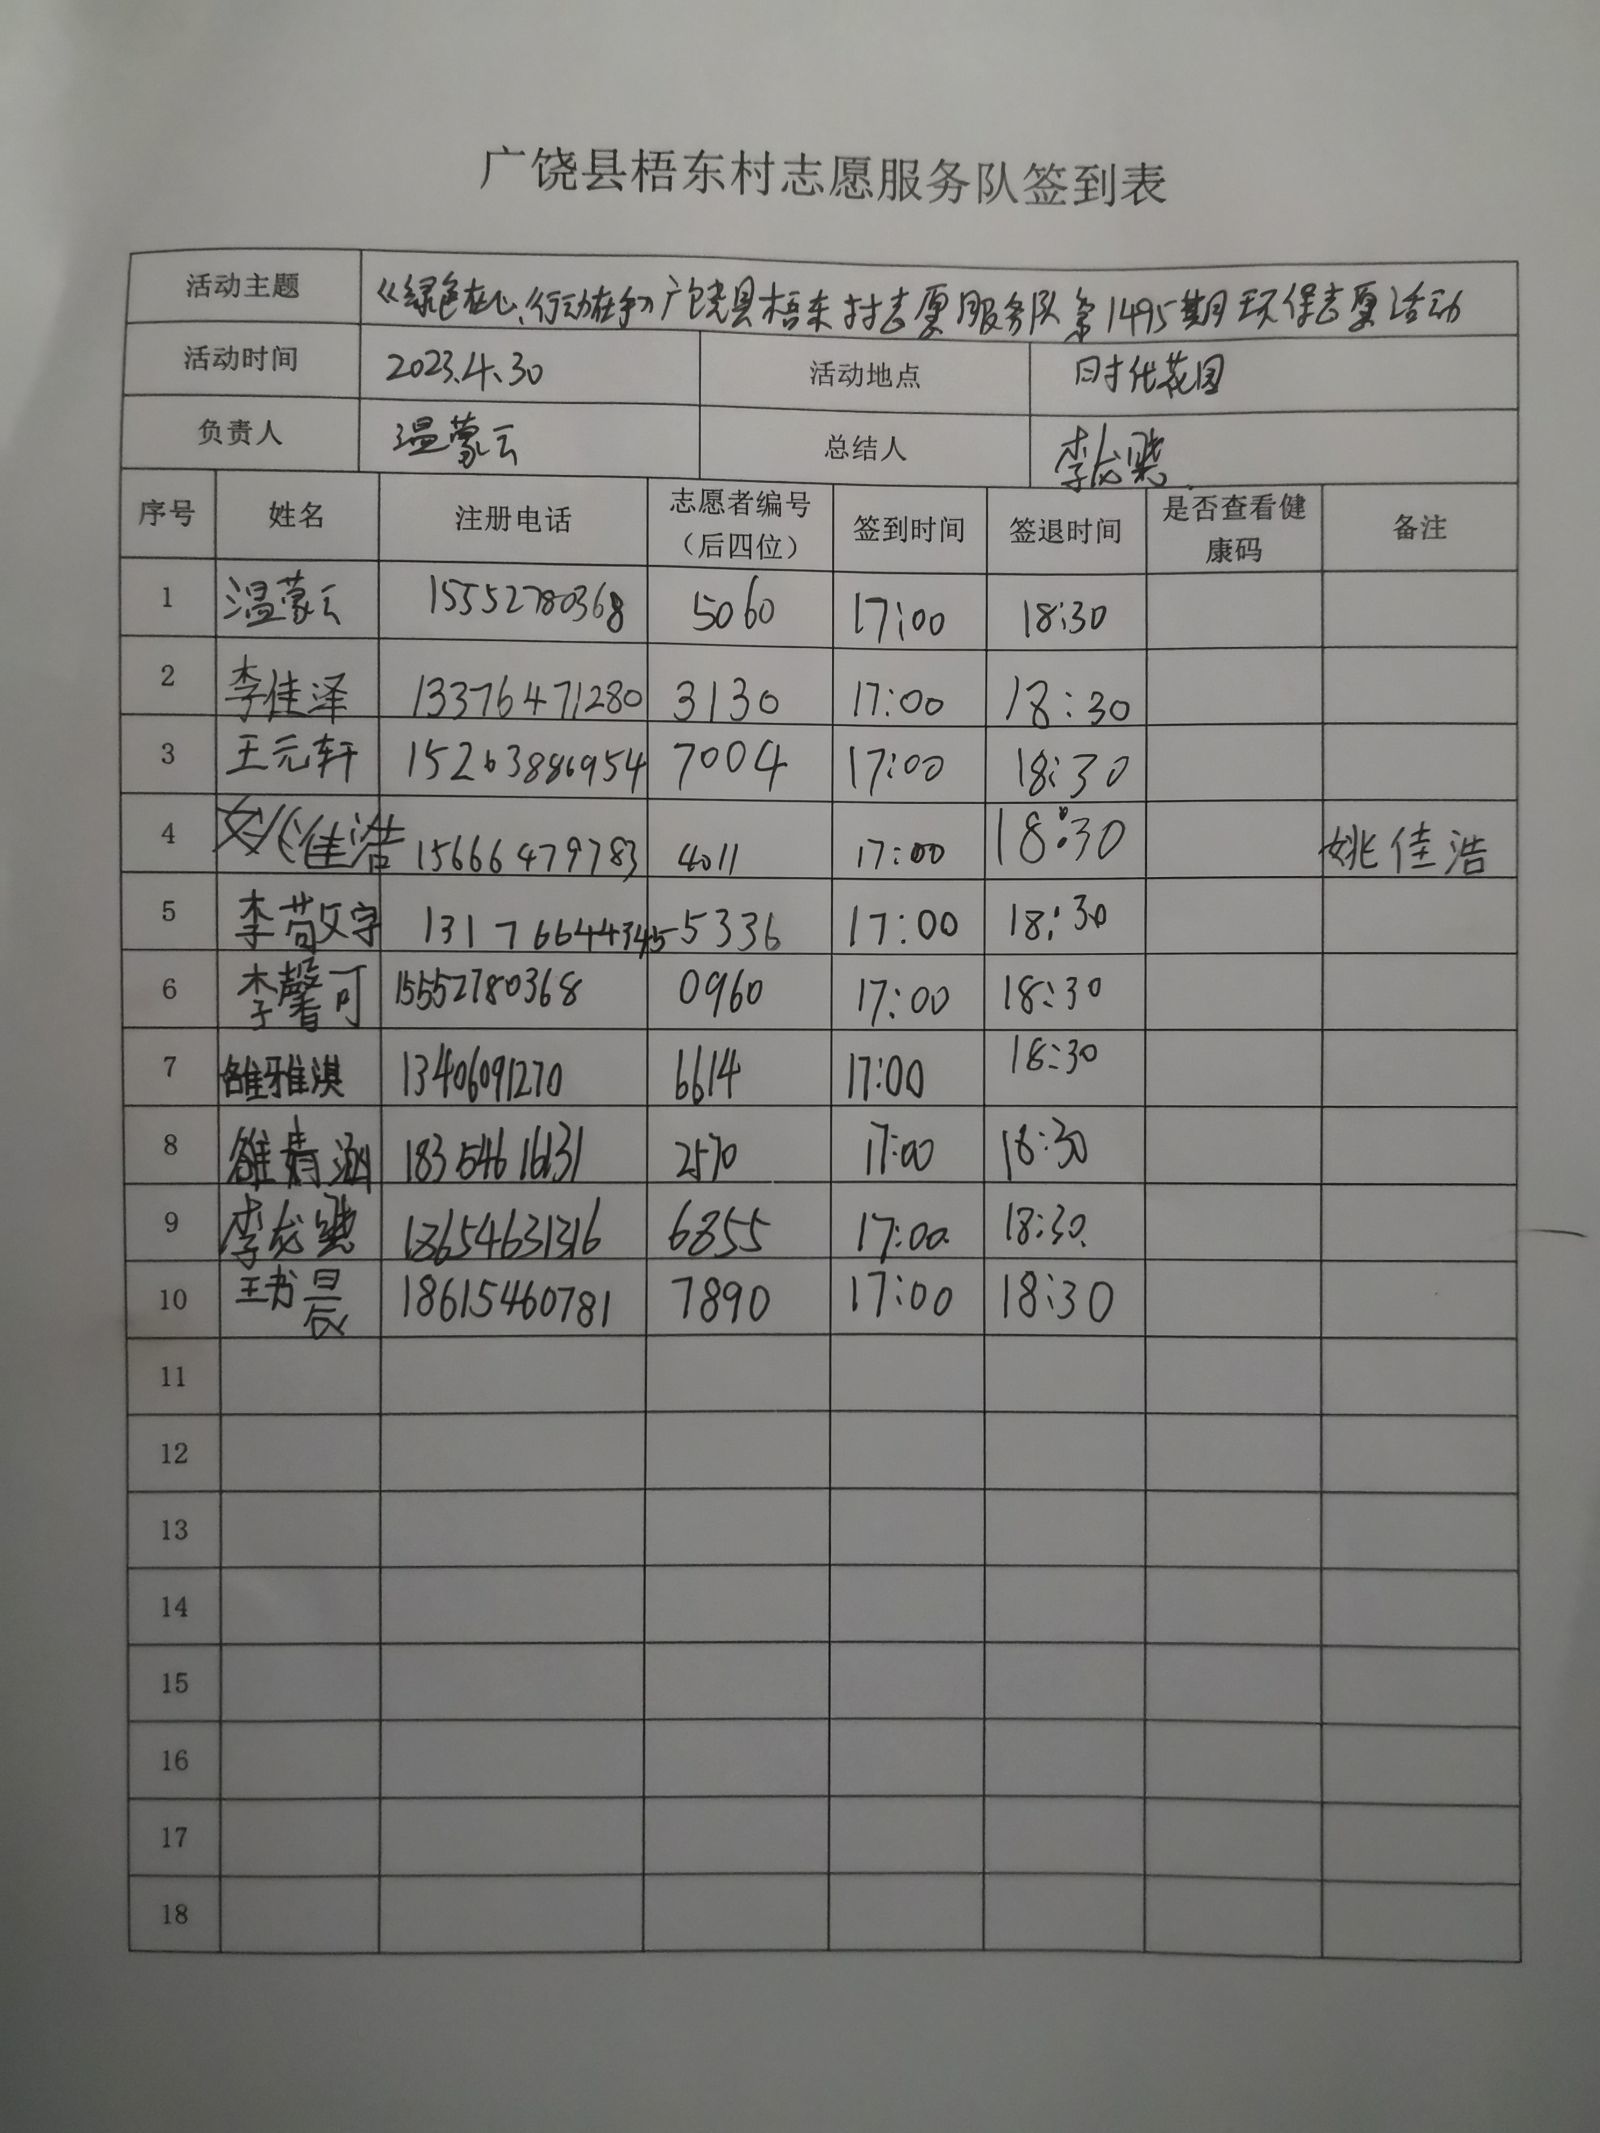 广饶县梧东村志愿服务队签到表
活动主题 《绿色在心、行动在手》广饶县梧东村志愿服务队第1495期环保志愿活动
活动时间 2023.4.30 活动地点 时代花园
负责人 温蒙云 总结人 李龙
序号 姓名 注册电话 志愿者编号（后四位） 签到时间 签退时间 是否查看健康码 备注
1 温蒙云 15552780368 5060 17:00 18:30
2 李佳泽 13376471280 3130 17:00 18:30
3 王元轩 15263886954 7004 17:00 18:30
4 姚佳浩 15666479783 4011 17:00 18:30 姚佳浩
5 李 13176644345 5336 17:00 18:30
6 李馨可 15552780368 0960 17:00 18:30
7 雒雅淇 13406091270 6614 17:00 18:30
8 雒婧涵 18354616131 2570 17:00 18:30
9 李龙 18654631316 6855 17:00 18:30
10 王书晨 18615460781 7890 17:00 18:30
11
12
13
14
15
16
17
18